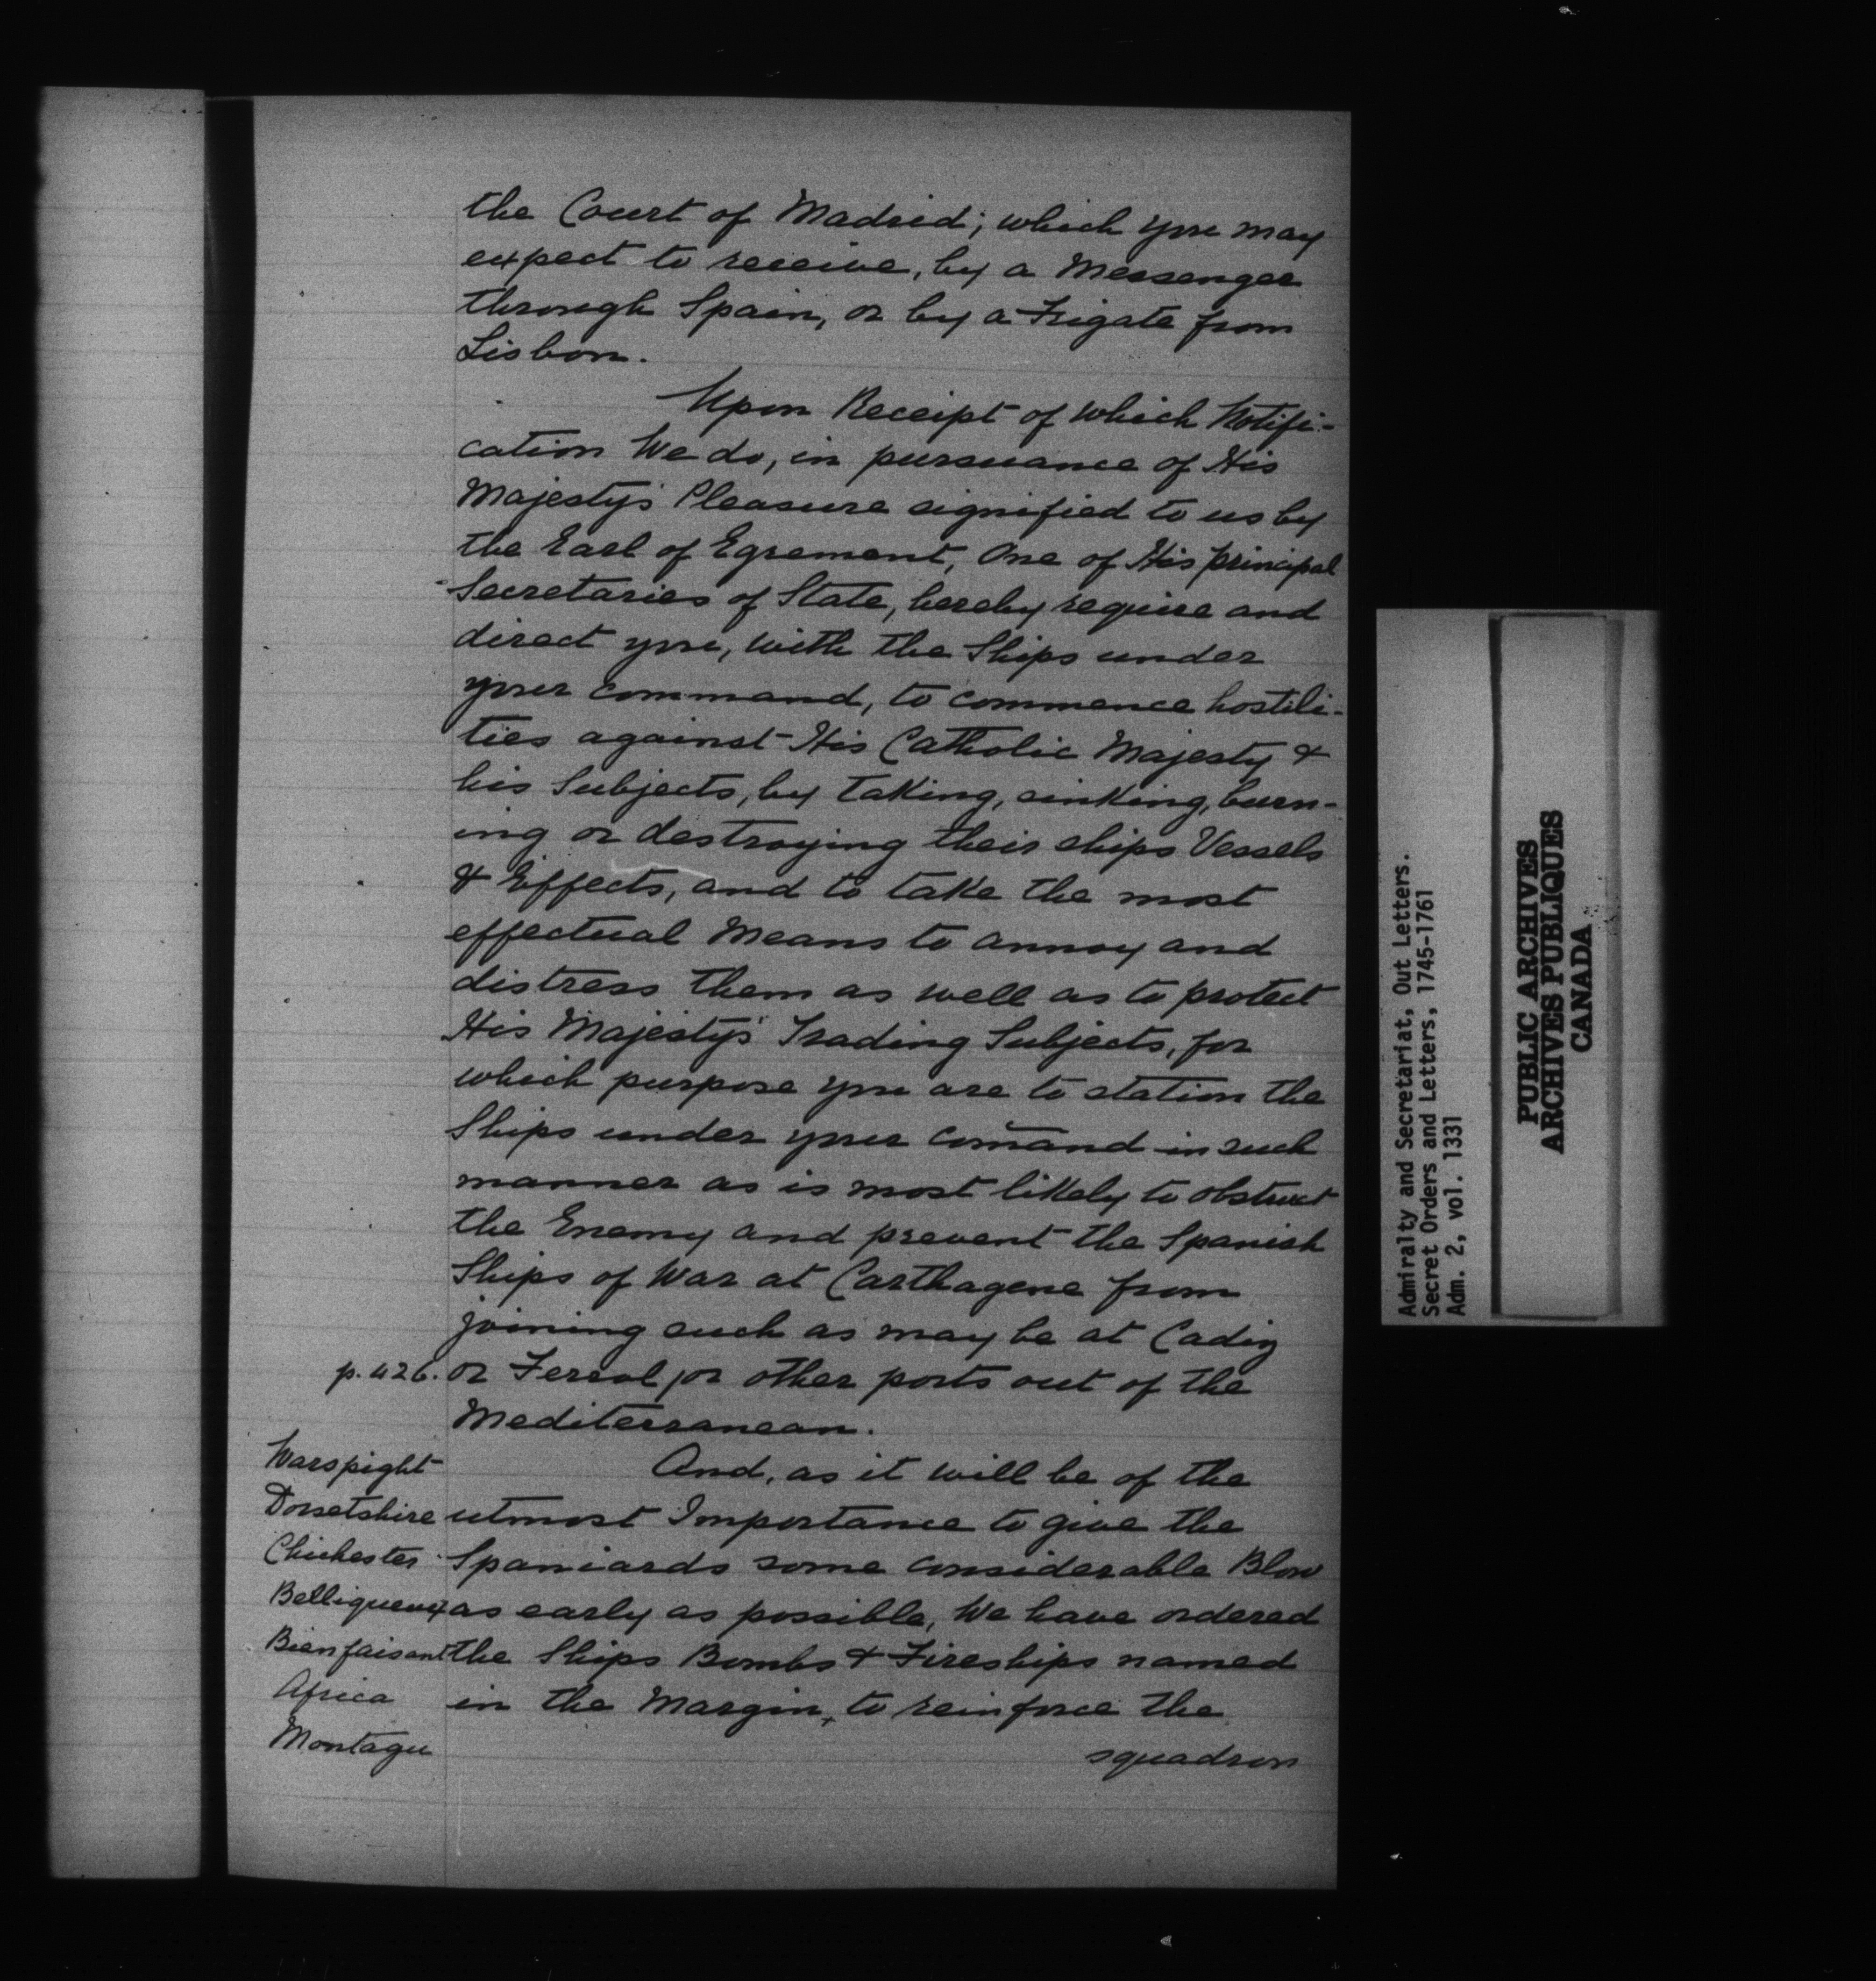 the Court of Madrid; which you may
expect to receive, by a Messenger
through Spain, or by a Frigate from
Lisbon.
Upon Receipt of which Notifi-
cation We do, in pursuance of His
Majesty's Pleasure signified to us by
the Earl of Egremont, One of His principal
Secretaries of State, hereby require and
direct you, with the Ships under
your command, to commence hostili-
ties against His Catholic Majesty &
his Subjects, by taking, sinking, burn-
ing or destroying their ships Vessels
& Effects, and to take the most
effectual Means to annoy and
distress them as well as to protect
His Majesty's Trading Subjects, for
which purpose you are to station the
Ships under your comand in such
manner as is most likely to obstruct
the Enemy and prevent the Spanish
Ships of War at Carthagene from
joining such as may be at Cadiz
p. 426. or Ferrol, or other ports out of the
Mediterranean.
Warspight
And, as it will be of the
Dorsetshire
utmost Importance to give the
Chichester
Spaniards some considerable Blow
Belliqueux
as early as possible, We have ordered
Bienfaisant
the Ships Bombs & Fireships named
Africa
in the Margin, to reinforce the
Montagu
squadron
Admiralty and Secretariat, Out Letters.
Secret Orders and Letters, 1745-1761
Adm. 2, vol. 1331
PUBLIC ARCHIVES
ARCHIVES PUBLIQUES
CANADA